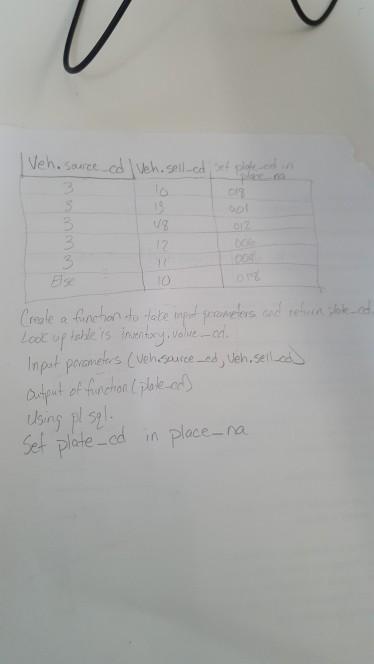 Veh.source_cd Veh.sell_cd Set plate_cd in place_na
3 10 018
3 19 001
3 V8 012
3 12
3 11
Else 10 018
Create a function to take input parameters and return plate_cd.
Look up table is inventory.value_cd.
Input parameters (Veh.source_cd, Veh.sell_cd)
Output of function (plate_cd)
Using pl sql.
Set plate_cd in place_na